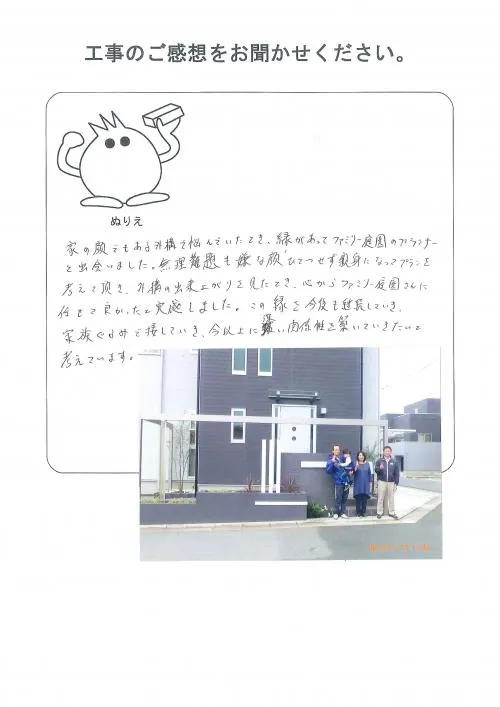 工事のご感想をお聞かせください。
ぬりえ
家の顔でもある外構で悩んでいたとき、縁があってファミリー庭園のプランナー
と出会いました。無理難題も嫌な顔ひとつせず親身になってプランを
考えて頂き、外構の出来上がりを見たとき、心からファミリー庭園さんに
任せて良かったと実感しました。この縁を今後も継続していき、
家族ぐるみで接していき、今以上に深い関係性を築いていきたいと
考えています。